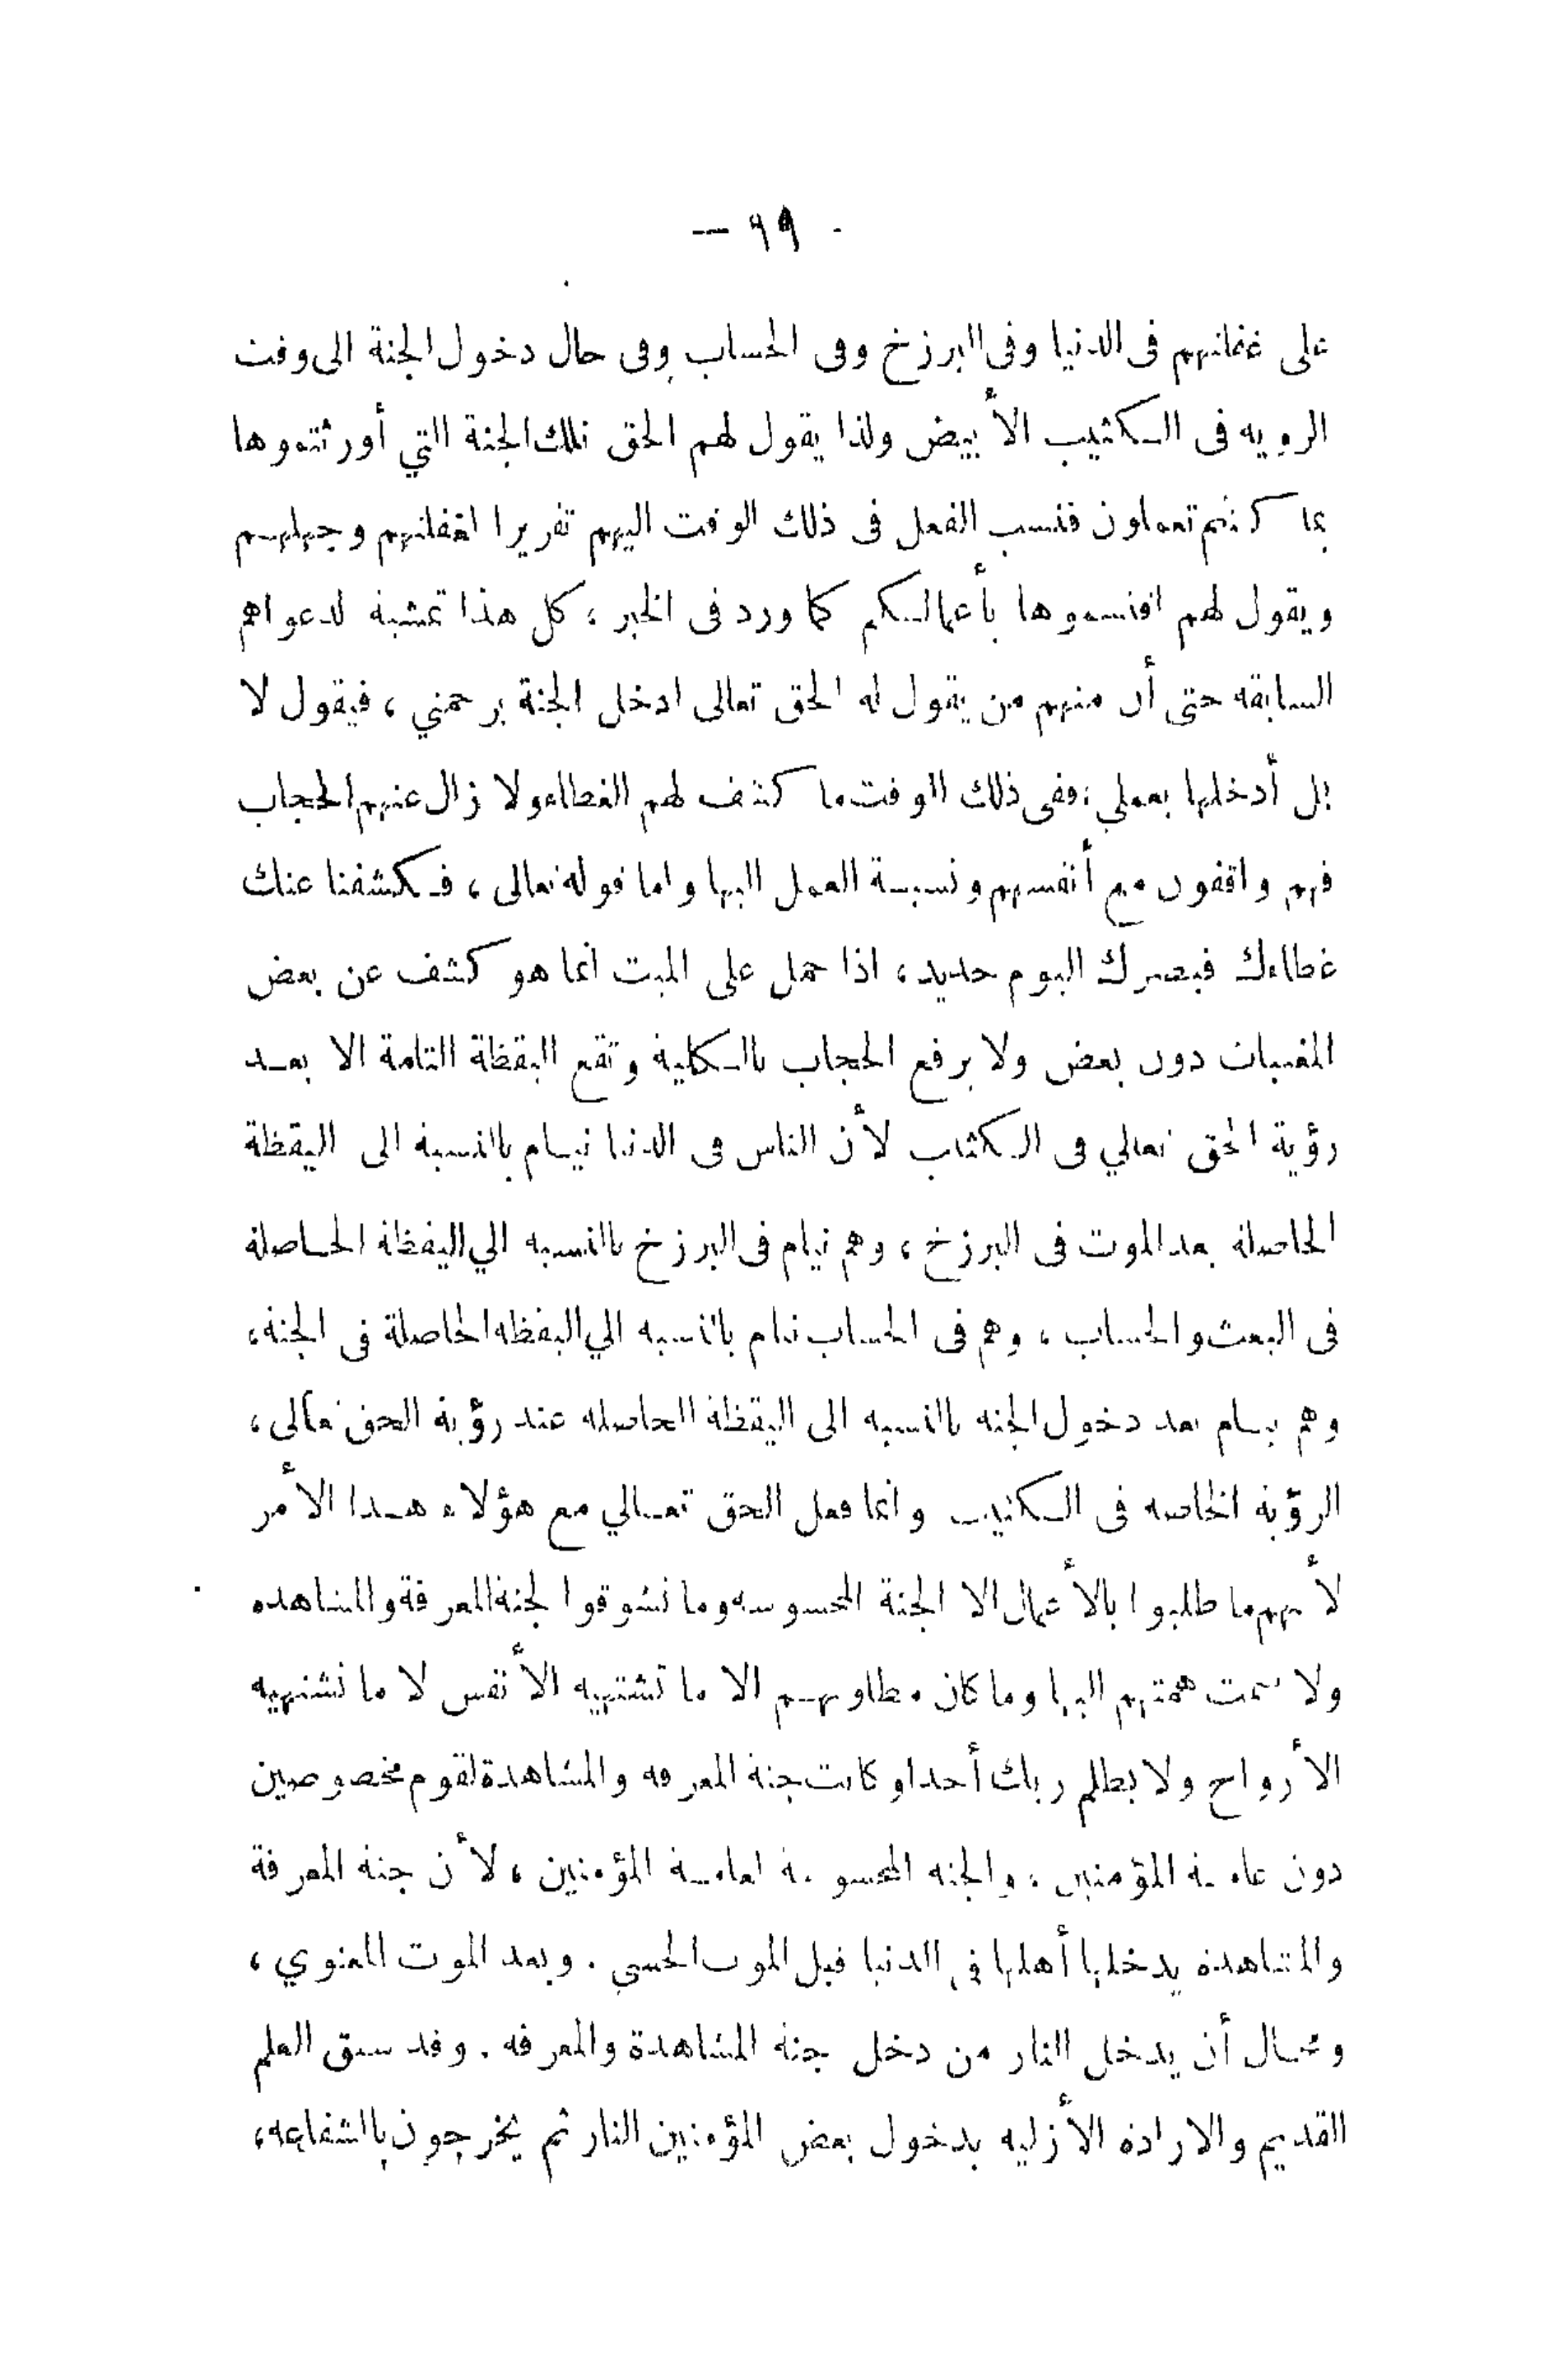 — ٩٩ -
على غفلتهم فى الدنيا وفى البرزخ وفى الحساب وفى حال دخول الجنة الى وقت
الروية فى الكثيب الأبيض ولذا يقول لهم الحق تلك الجنة التي أورثتموها
بما كنتم تعملون فنسب الفعل فى ذلك الوقت اليهم تقريرا لغفلتهم وجهلهم
ويقول لهم اقتسموها بأعمالكم كما ورد فى الخبر ، كل هذا تمشية لدعواهم
السابقه حتى أن منهم من يقول له الحق تعالى ادخل الجنة برحمتي ، فيقول لا
بل أدخلها بعملي ، ففى ذلك الوقت ما كشف لهم الغطاء ولا زال عنهم الحجاب
فهم واقفون مع أنفسهم ونسبة العمل اليها واما قوله تعالى ، فكشفنا عنك
غطاءك فبصرك اليوم حديد ، اذا حمل على الميت انما هو كشف عن بعض
المغيبات دون بعض ولا يرفع الحجاب بالكلية وتقع اليقظة التامة الا بعد
رؤية الحق تعالي فى الكثيب لأن الناس فى الدنيا نيام بالنسبة الى اليقظة
الحاصلة بعد الموت فى البرزخ ، وهم نيام فى البرزخ بالنسبه الي اليقظة الحاصلة
فى البعث والحساب ، وهم فى الحساب نيام بالنسبه الي اليقظه الحاصلة فى الجنة ،
وهم نيام بعد دخول الجنه بالنسبه الى اليقظة الحاصله عند رؤية الحق تعالى ،
الرؤية الخاصه فى الكثيب وانما فعل الحق تعالي مع هؤلاء هذا الأمر
لأنهم ما طلبوا بالأعمال الا الجنة المحسوسه وما تشوقوا لجنة المعرفة والمشاهده
ولا سمت همتهم اليها وما كان مطلوبهم الا ما تشتهيه الأنفس لا ما تشتهيه
الأرواح ولا يظلم ربك أحدا وكانت جنة المعرفه والمشاهدة لقوم مخصوصين
دون عامة المؤمنين ، والجنه المحسوسة لعامة المؤمنين ، لأن جنة المعرفة
والمشاهدة يدخلها أهلها في الدنيا قبل الموت الحسي . وبعد الموت المعنوي ،
ومحال أن يدخل النار من دخل جنة المشاهدة والمعرفه . وقد سبق العلم
القديم والارادة الأزليه بدخول بعض المؤمنين النار ثم يخرجون بالشفاعه ،